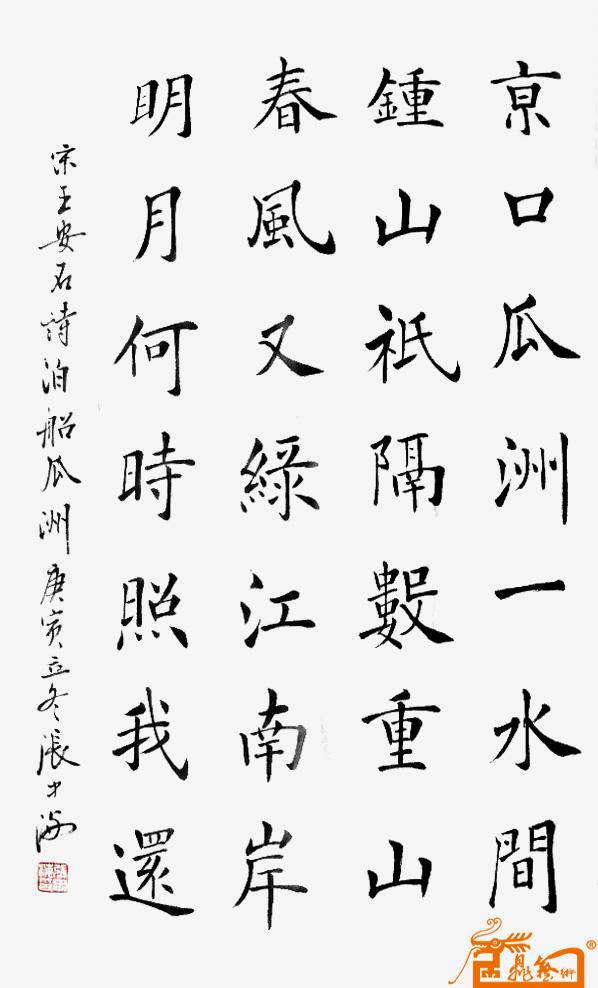 京口瓜洲一水間
鍾山祗隔數重山
春風又綠江南岸
明月何時照我還
宋王安石詩泊船瓜洲庚寅立冬張才